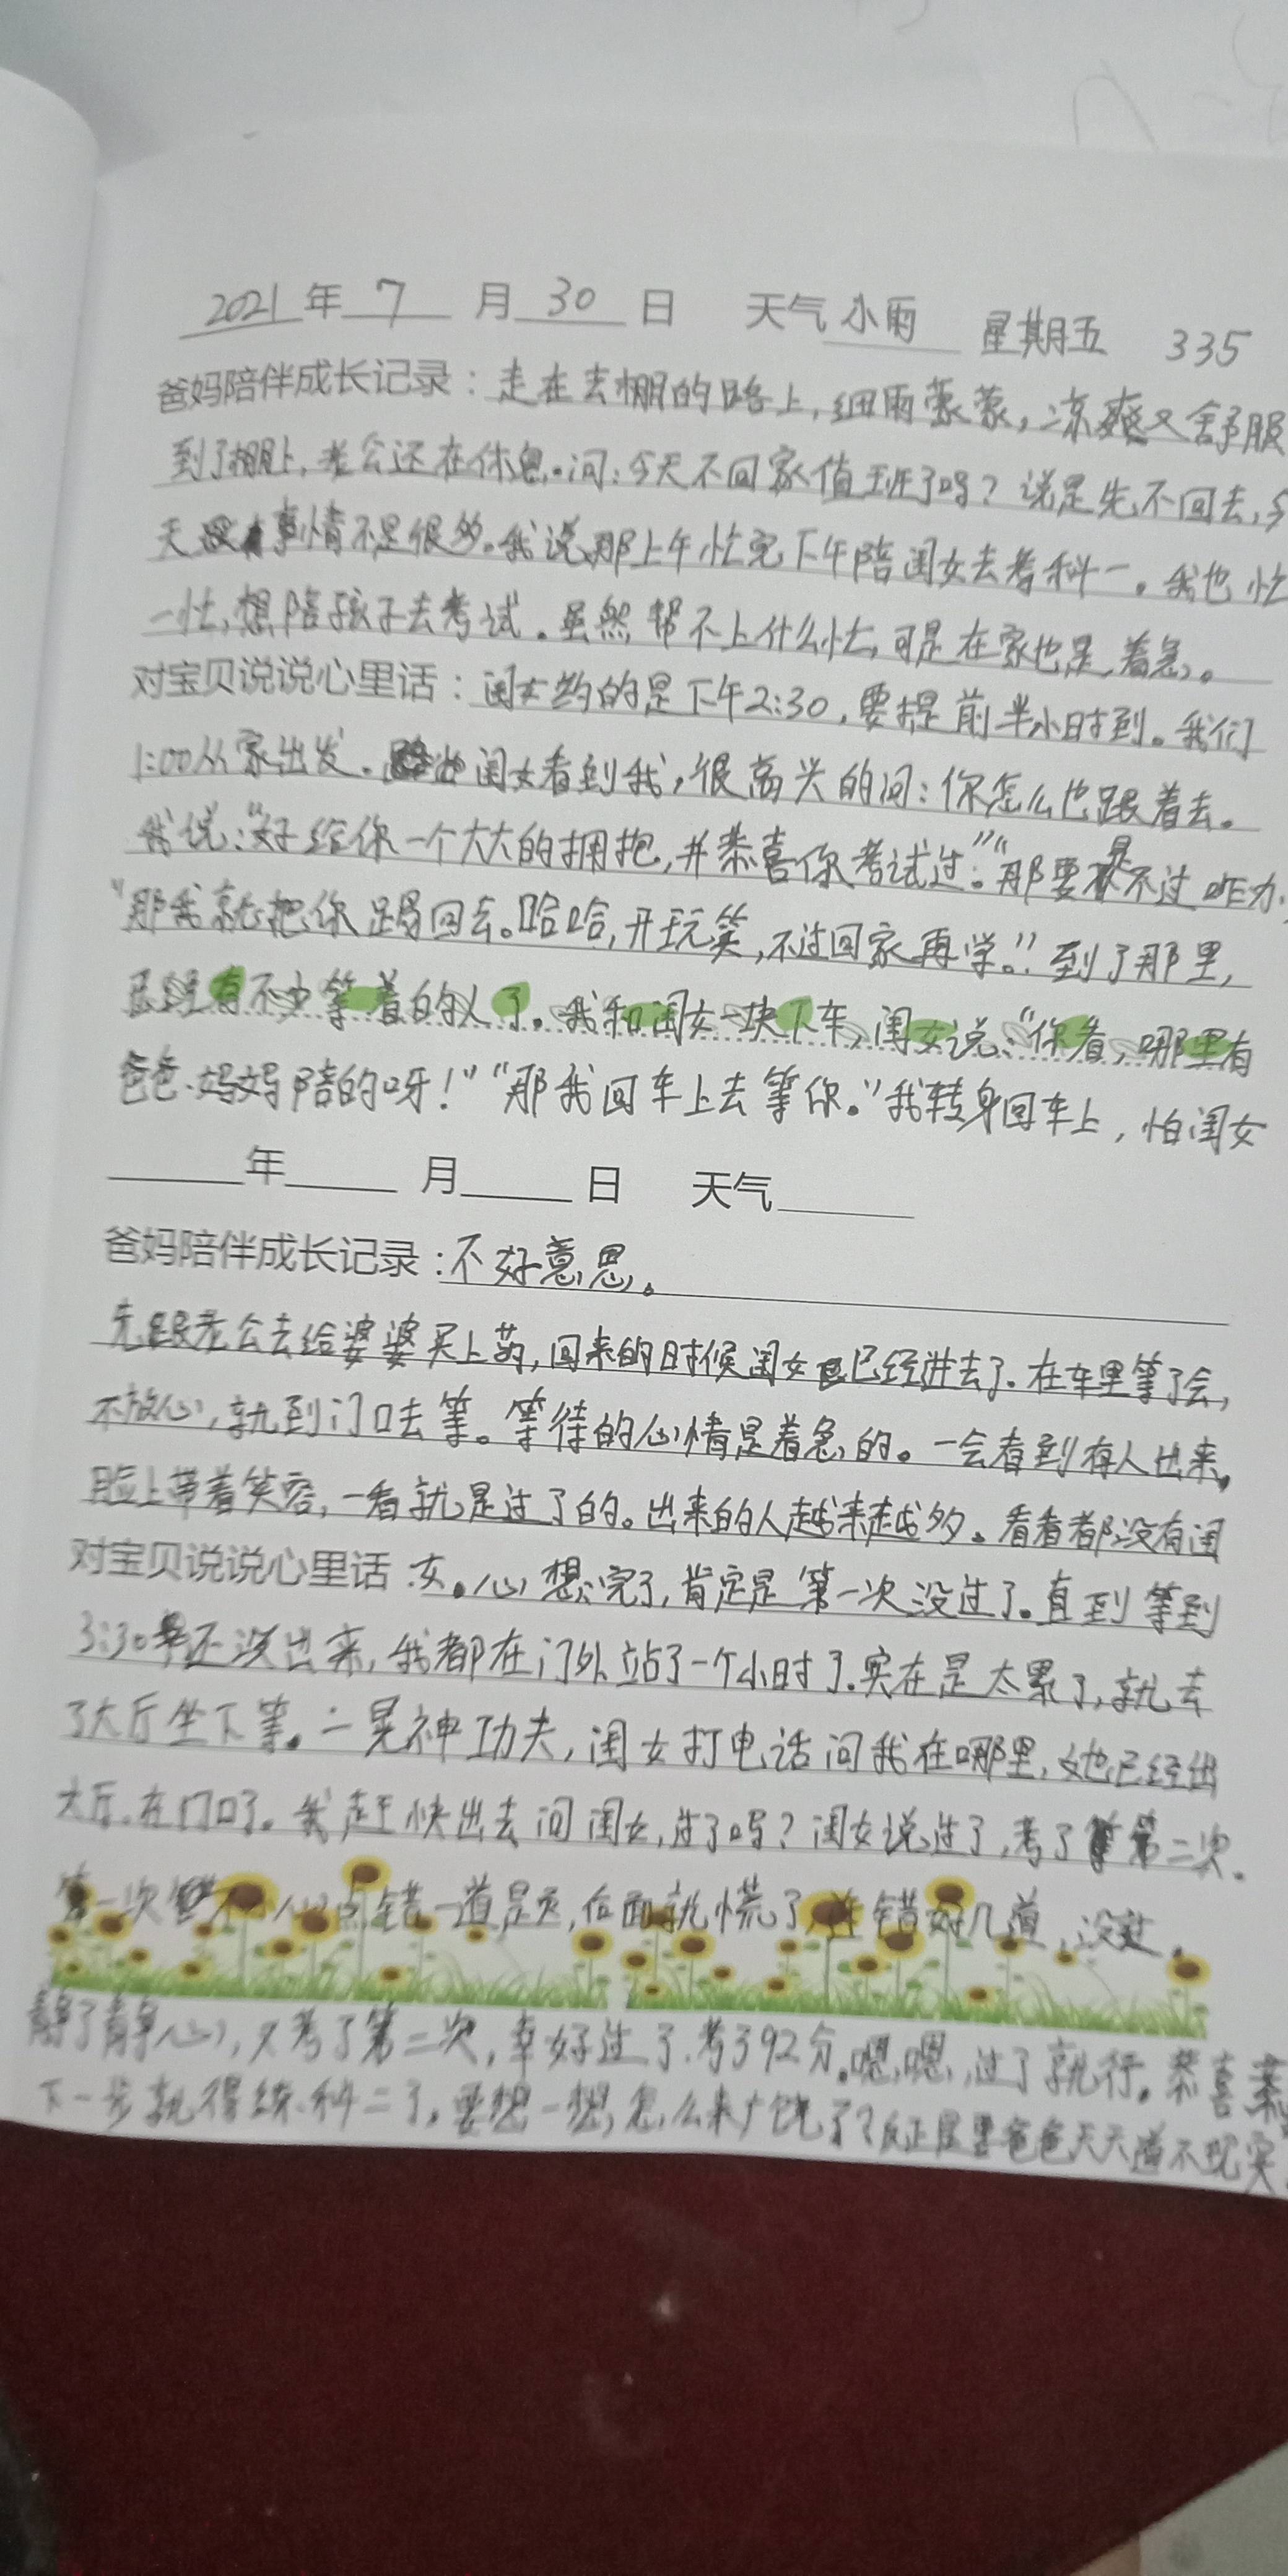 2021年 7 月 30 日 天气 小雨 星期五 335
爸妈陪伴成长记录：走在去棚的路上，细雨蒙蒙，凉爽又舒服
到了棚上，老公还在休息。问：今天不回家值班了吗？说是先不回去，今
天事情不是很多。我说那上午忙完下午陪闺女去考科一。我也忙
一忙，想陪孩子去考试。虽然帮不上什么忙，可是在家也是着急。
对宝贝说说心里话：闺女约的是下午2:30，要提前半小时到。我们
1:00从家出发。闺女看到我，很高兴的问：你怎么也跟着去。
我说：“好给你一个大大的拥抱，并恭喜你考试过。”“那要是不过咋办，
“那我就把你踢回去。哈哈，开玩笑，不过回家再学。”到了那里，
已经有不少等着的人了。我和闺女一块下车，闺女说：“你看，哪里有
爸爸妈妈陪的呀！”“那我回车上去等你。”我转身回车上，怕闺女
年 月 日 天气
爸妈陪伴成长记录：不好意思。
先跟老公去给婆婆买上药，回来的时候闺女已经进去了。在车里等了会，
不放心，就到门口去等。等待的心情是着急的。一会看到有人出来，
脸上带着笑容，一看就是过了的。出来的人越来越多。看看都没有闺
对宝贝说说心里话：女。心想：完了，肯定是第一次没过了。直到等到
3:30还没出来，我都在门外站了一个小时了。实在是太累了，就去
了大厅坐下等。一晃神功夫，闺女打电话问我在哪里，她已经出
大厅，在门口了。我赶快出去问闺女，过了吗？闺女说过了，考了第二次。
第一次 心点错一道题，后面就慌了，连错好几道，没过。
静了静心，又考了第二次，幸好过了。考了92分。嗯，嗯，过了就行。恭喜
下一步就得练科二了。要想一想，怎么来 了？反正屋里爸爸天天 不现实